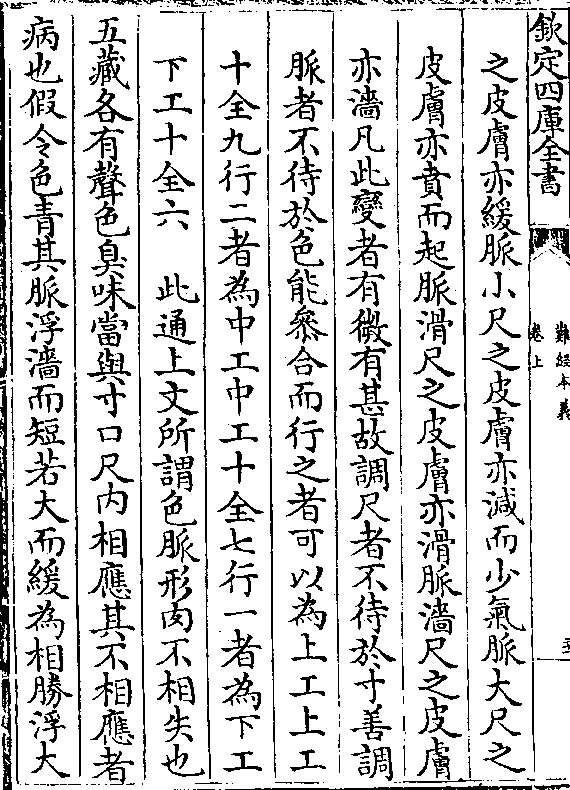 欽定四庫全書
難經本義
卷上
之皮膚亦緩脈小尺之皮膚亦減而少氣脈大尺之
皮膚亦賁而起脈滑尺之皮膚亦滑脈濇尺之皮膚
亦濇凡此變者有微有甚故調尺者不待於寸善調
脈者不待於色能叅合而行之者可以為上工上工
十全九行二者為中工中工十全七行一者為下工
下工十全六　此通上文所謂色脈形肉不相失也
五藏各有聲色臭味當與寸口尺内相應其不相應者
病也假令色青其脈浮濇而短若大而緩為相勝浮大